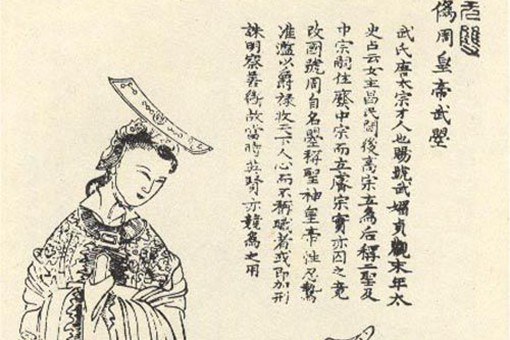 无雙
僞周皇帝武曌
武氏唐太宗才人也賜號武媚貞觀末年太
史占云女主昌民間後高宗立為后稱二聖及
中宗嗣位廢中宗而立睿宗實亦囚之竟
改國號周自名曌稱聖神皇帝性忍鷙
准濫以爵祿收天下人心而不稱職者或即加刑
誅明察善術故當時英賢亦競為之用